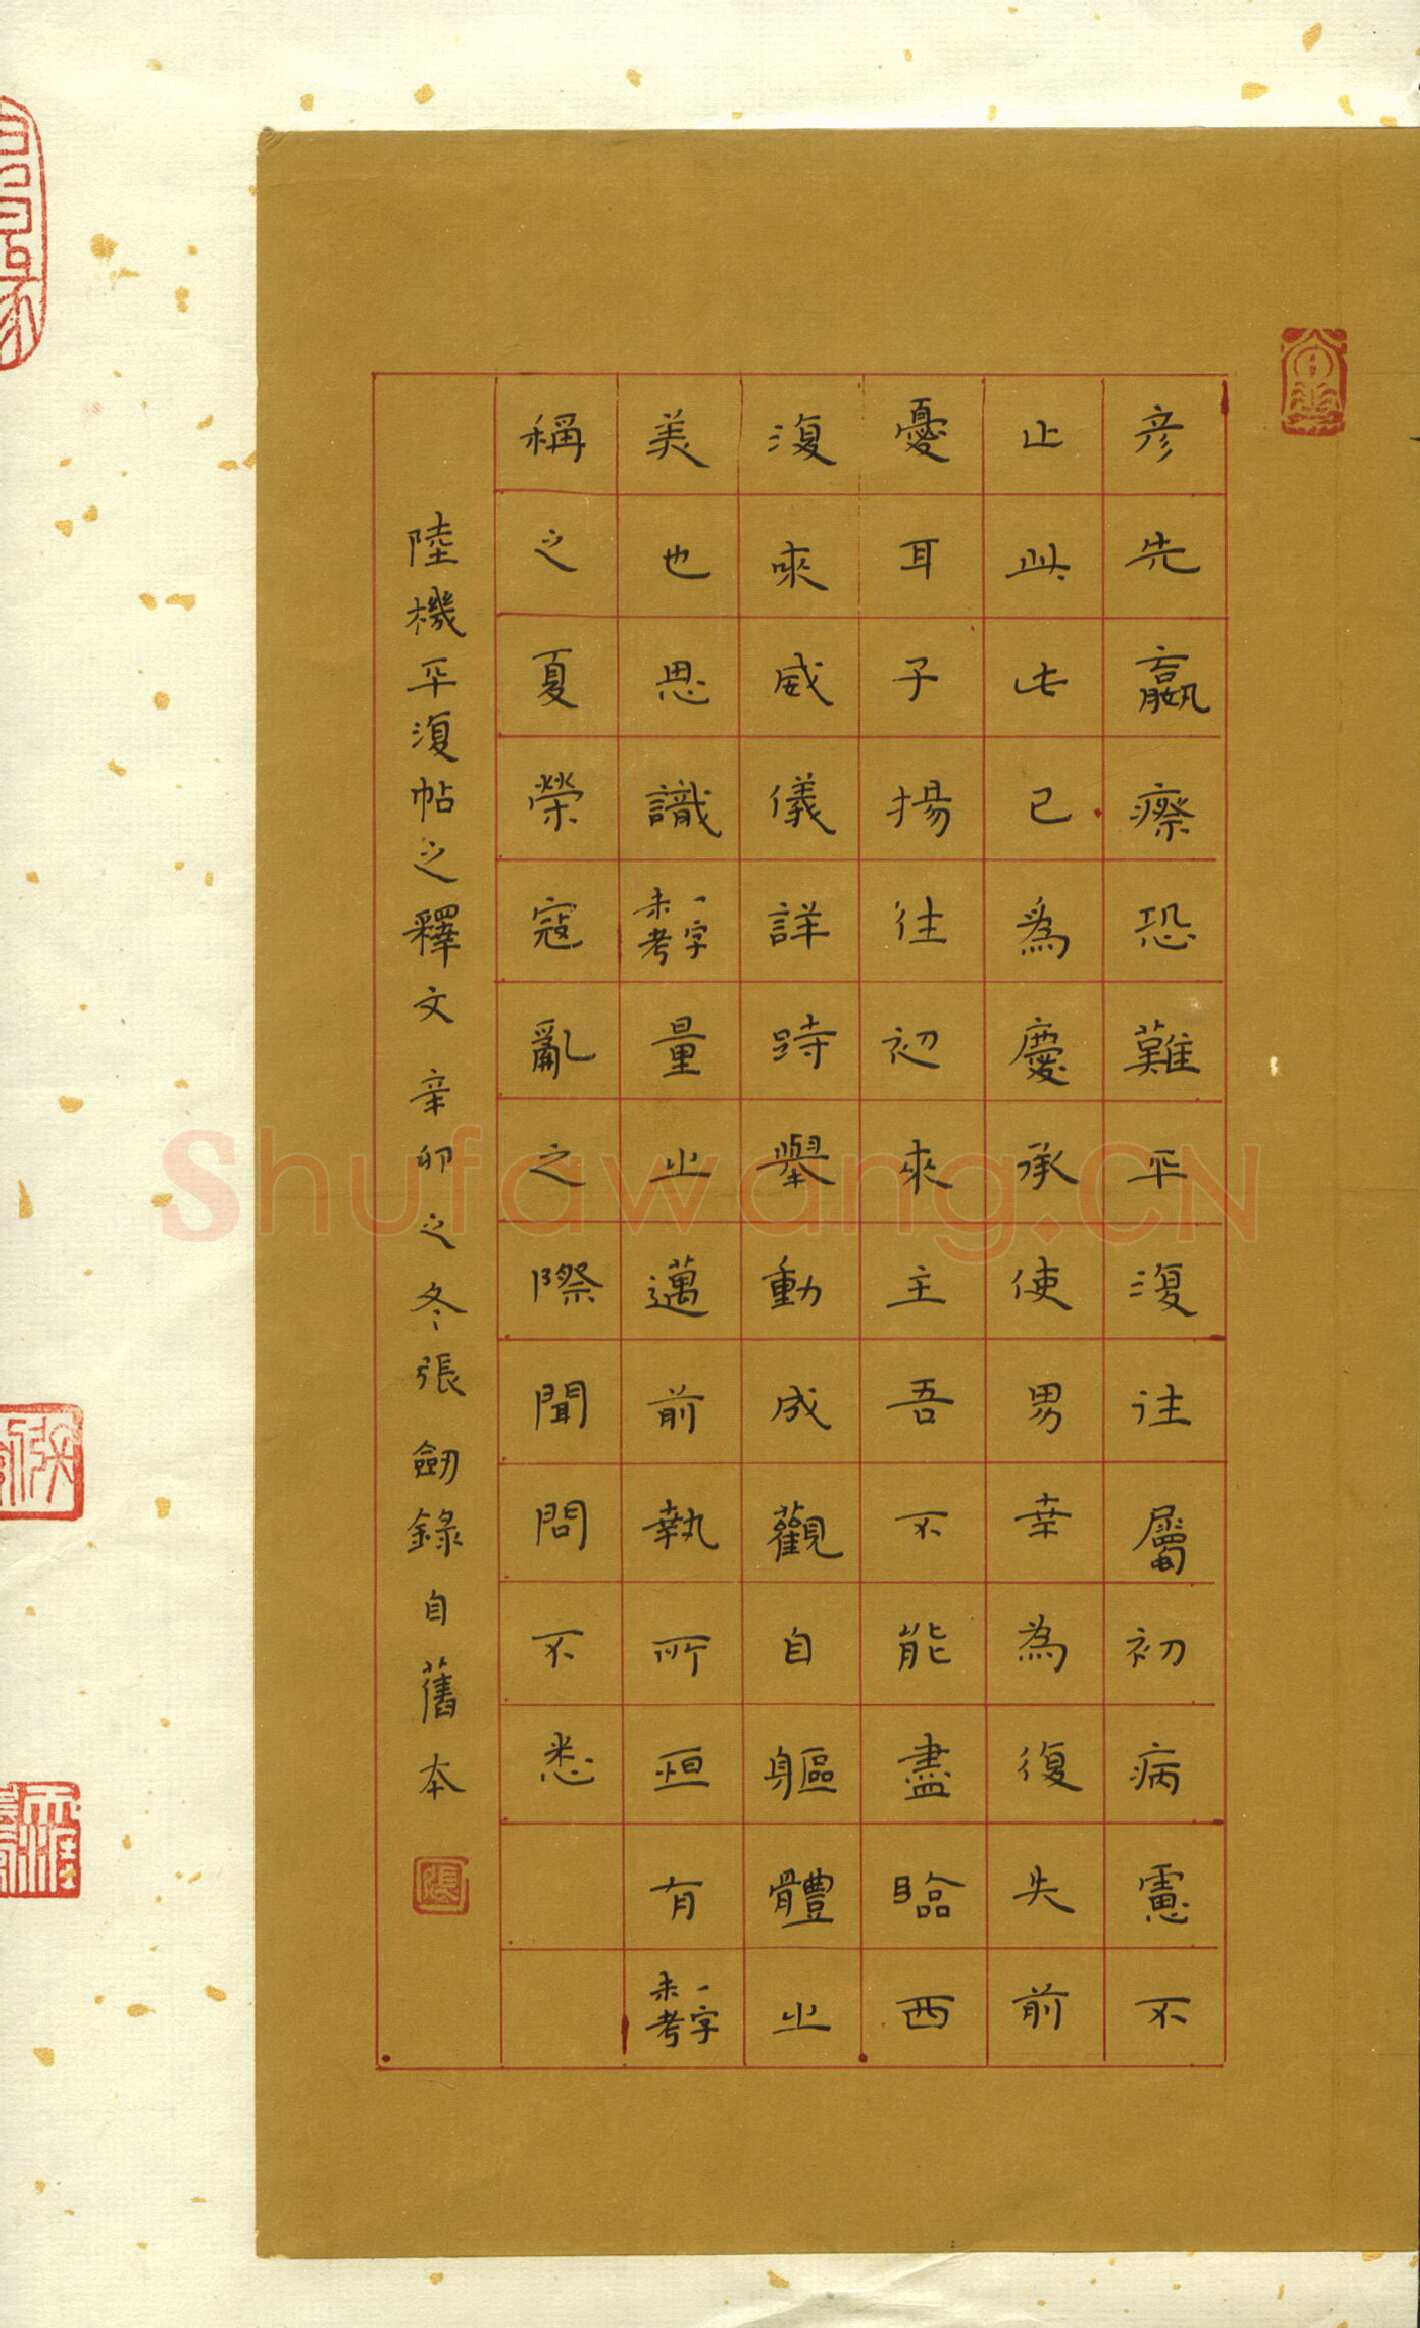 彦先羸瘵恐難平復往屬初病慮不
止此此已為慶承使男幸為復失前
憂耳子揚往初來主吾不能盡臨西
復來威儀詳跱舉動成觀自軀體之
美也思識一字未考量之邁前執所恒有一字未考
稱之夏榮寇亂之際聞問不悉
陸機平復帖之釋文 辛卯之冬張劍錄自舊本
張
Shufawang.CN